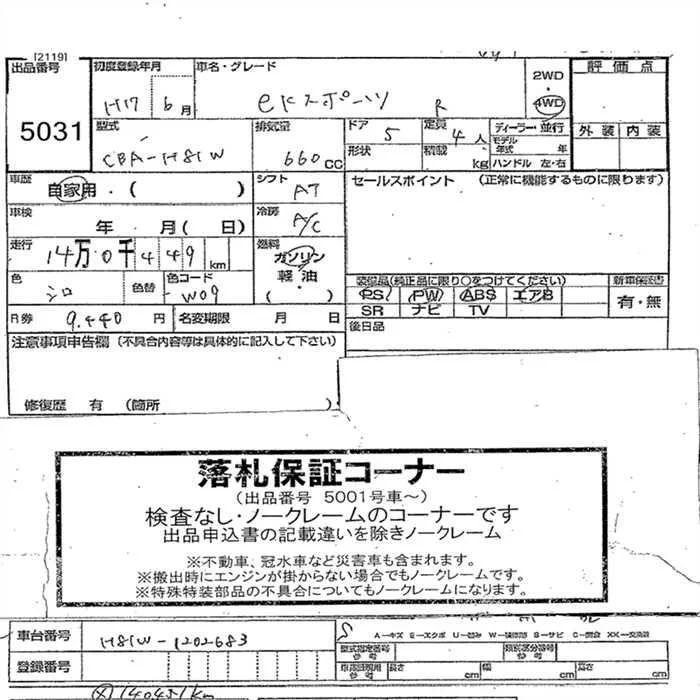 [2119]
出品番号 初度登録年月 車名・グレード 2WD 評価点
5031 H17 6月 eKスポーツ R 4WD
型式 排気量 ドア 定員 ディーラー・並行 外装 内装
CBA-H81W 660CC 5 4人 モデル年式 年
形状 積載 kg ハンドル 左・右
車歴 自家用・( ) シフト AT セールスポイント (正常に機能するものに限ります)
車検 年 月( 日) 冷房 A/C
走行 14万0千449km 燃料 ガソリン・軽油 ( )
色 シロ 色替 色コード W09
装備品(純正品に限り○をつけてください) 新車保証書
PS PW ABS エアB 有・無
SR ナビ TV
R券 9.440円 名変期限 月 日 後日品
注意事項申告欄 (不具合内容等は具体的に記入して下さい)
修復歴 有 (箇所 )
落札保証コーナー
(出品番号 5001号車~)
検査なし・ノークレームのコーナーです
出品申込書の記載違いを除きノークレーム
※不動車、冠水車など災害車も含まれます。
※搬出時にエンジンが掛からない場合でもノークレームです。
※特殊特装部品の不具合についてもノークレームになります。
車台番号 H81W-1202683
A-キズ E-エクボ U-凹み S-サビ
登録番号 型式指定番号 参考 類別区分番号 参考
長さ cm 幅 cm 高さ cm
140451km